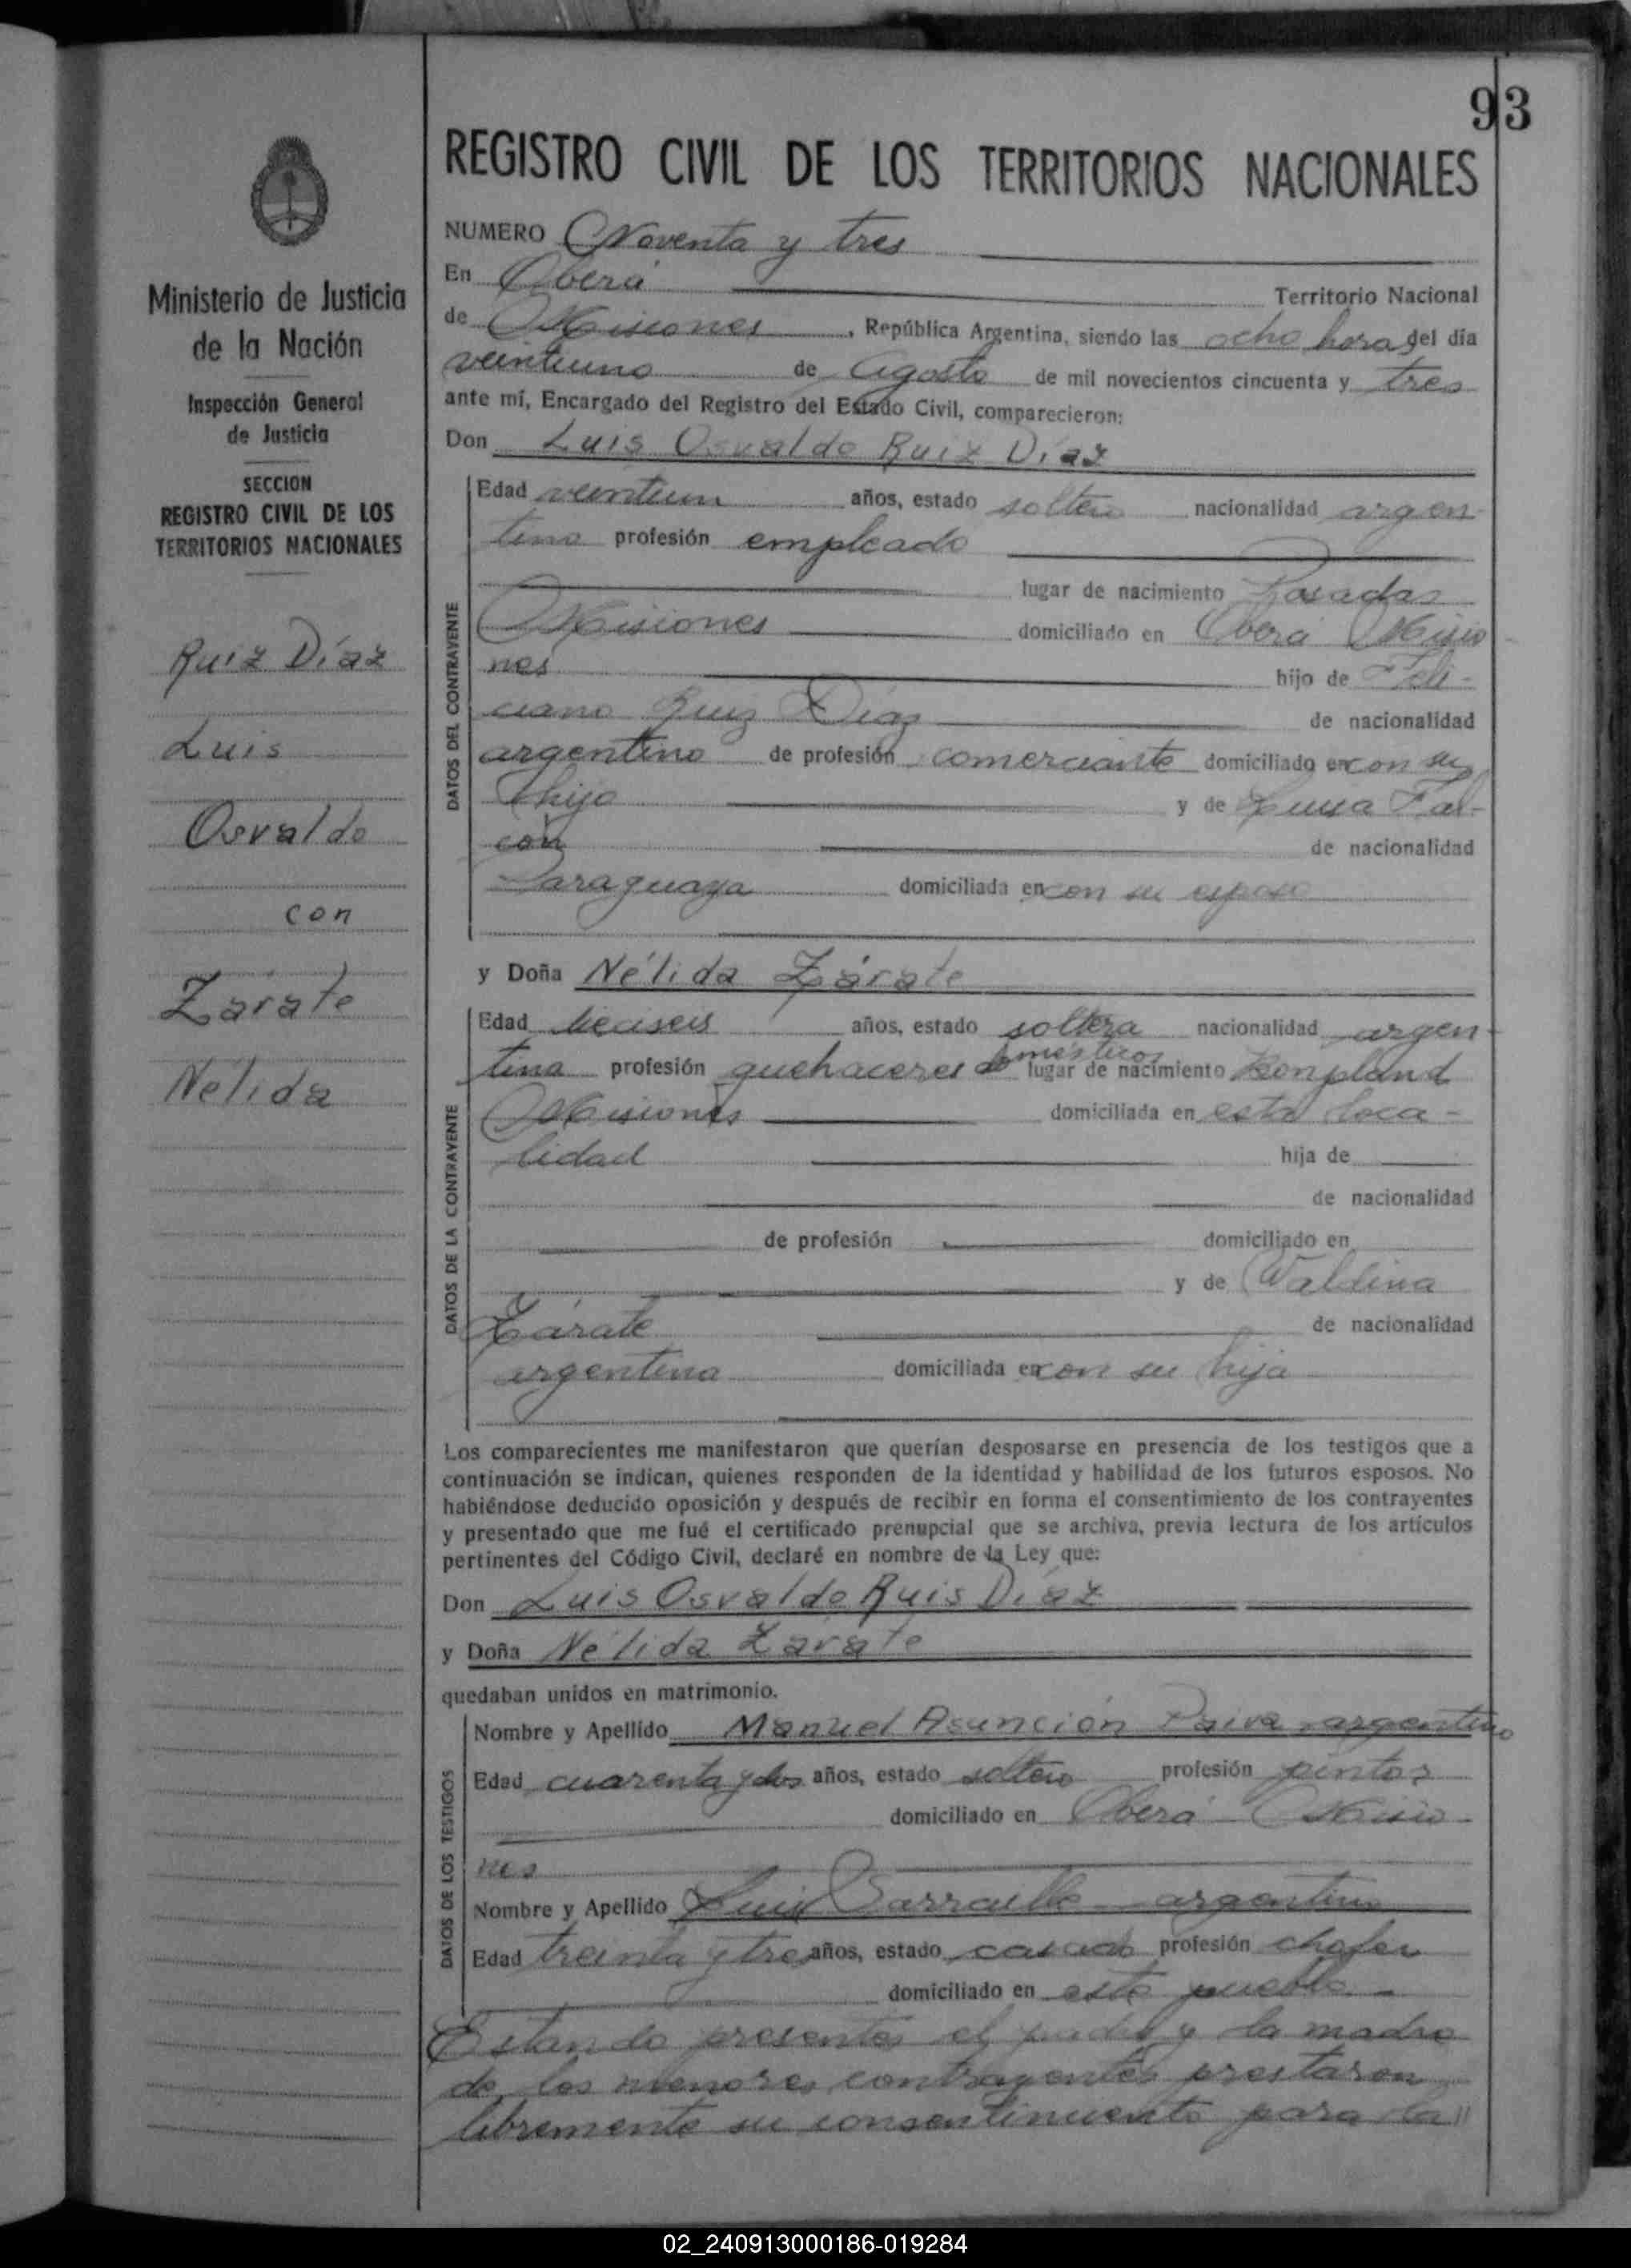 93
REGISTRO CIVIL DE LOS TERRITORIOS NACIONALES
Ministerio de Justicia
de la Nación
Inspección General
de Justicia
SECCION
REGISTRO CIVIL DE LOS
TERRITORIOS NACIONALES
Ruiz Díaz
Luis
Osvaldo
con
Zárate
Nélida
NUMERO Noventa y tres
En Oberá Territorio Nacional
de Misiones, República Argentina, siendo las ocho horas del día
veintiuno de Agosto de mil novecientos cincuenta y tres
ante mí, Encargado del Registro del Estado Civil, comparecieron:
Don Luis Osvaldo Ruiz Díaz
DATOS DEL CONTRAYENTE
Edad veintiun años, estado soltero nacionalidad argen-
tino profesión empleado
lugar de nacimiento Posadas
Misiones domiciliado en Oberá Misio-
nes hijo de Feli-
ciano Ruiz Díaz de nacionalidad
argentino de profesión comerciante domiciliado en con su
hijo y de Luisa Fal-
cón de nacionalidad
Paraguaya domiciliada en con su esposo
y Doña Nélida Zárate
DATOS DE LA CONTRAYENTE
Edad dieciseis años, estado soltera nacionalidad argen-
tina profesión quehaceres domésticos lugar de nacimiento Bonpland
Misiones domiciliada en esta loca-
lidad hija de
de nacionalidad
de profesión domiciliado en
y de Waldina
Zárate de nacionalidad
argentina domiciliada en con su hija
Los comparecientes me manifestaron que querían desposarse en presencia de los testigos que a
continuación se indican, quienes responden de la identidad y habilidad de los futuros esposos. No
habiéndose deducido oposición y después de recibir en forma el consentimiento de los contrayentes
y presentado que me fué el certificado prenupcial que se archiva, previa lectura de los artículos
pertinentes del Código Civil, declaré en nombre de la Ley que:
Don Luis Osvaldo Ruis Díaz
y Doña Nélida Zárate
quedaban unidos en matrimonio.
DATOS DE LOS TESTIGOS
Nombre y Apellido Manuel Asunción Paiva argentino
Edad cuarenta y dos años, estado soltero profesión pintor
domiciliado en Oberá Misio-
nes
Nombre y Apellido Luis argentino
Edad treinta y tres años, estado casado profesión chofer
domiciliado en este pueblo.-
Estando presentes el padre y la madre
de los menores contrayentes prestaron
libremente su consentimiento para la"
02_240913000186-019284